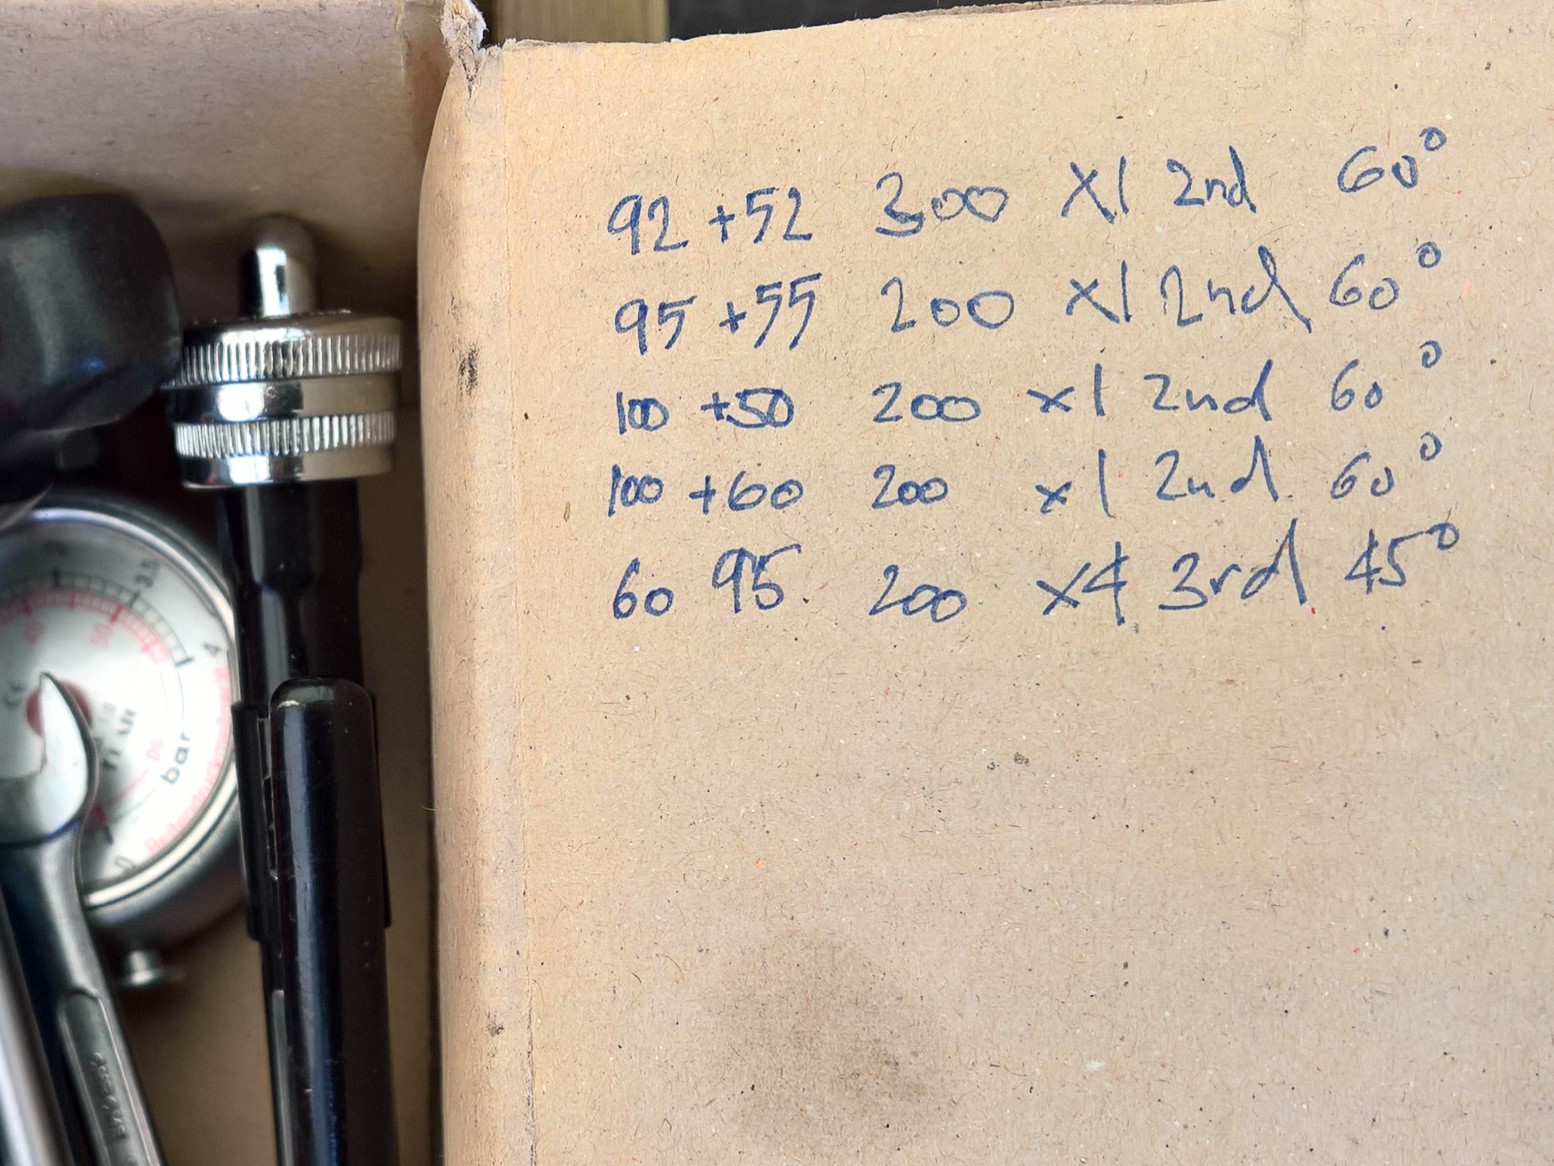 92 +52 300 x1 2nd 60°
95 +55 200 x1 2nd 60°
100 +50 200 x1 2nd 60°
100 +60 200 x1 2nd 60°
60 95 200 x4 3rd 45°
3.5
4
bar
0